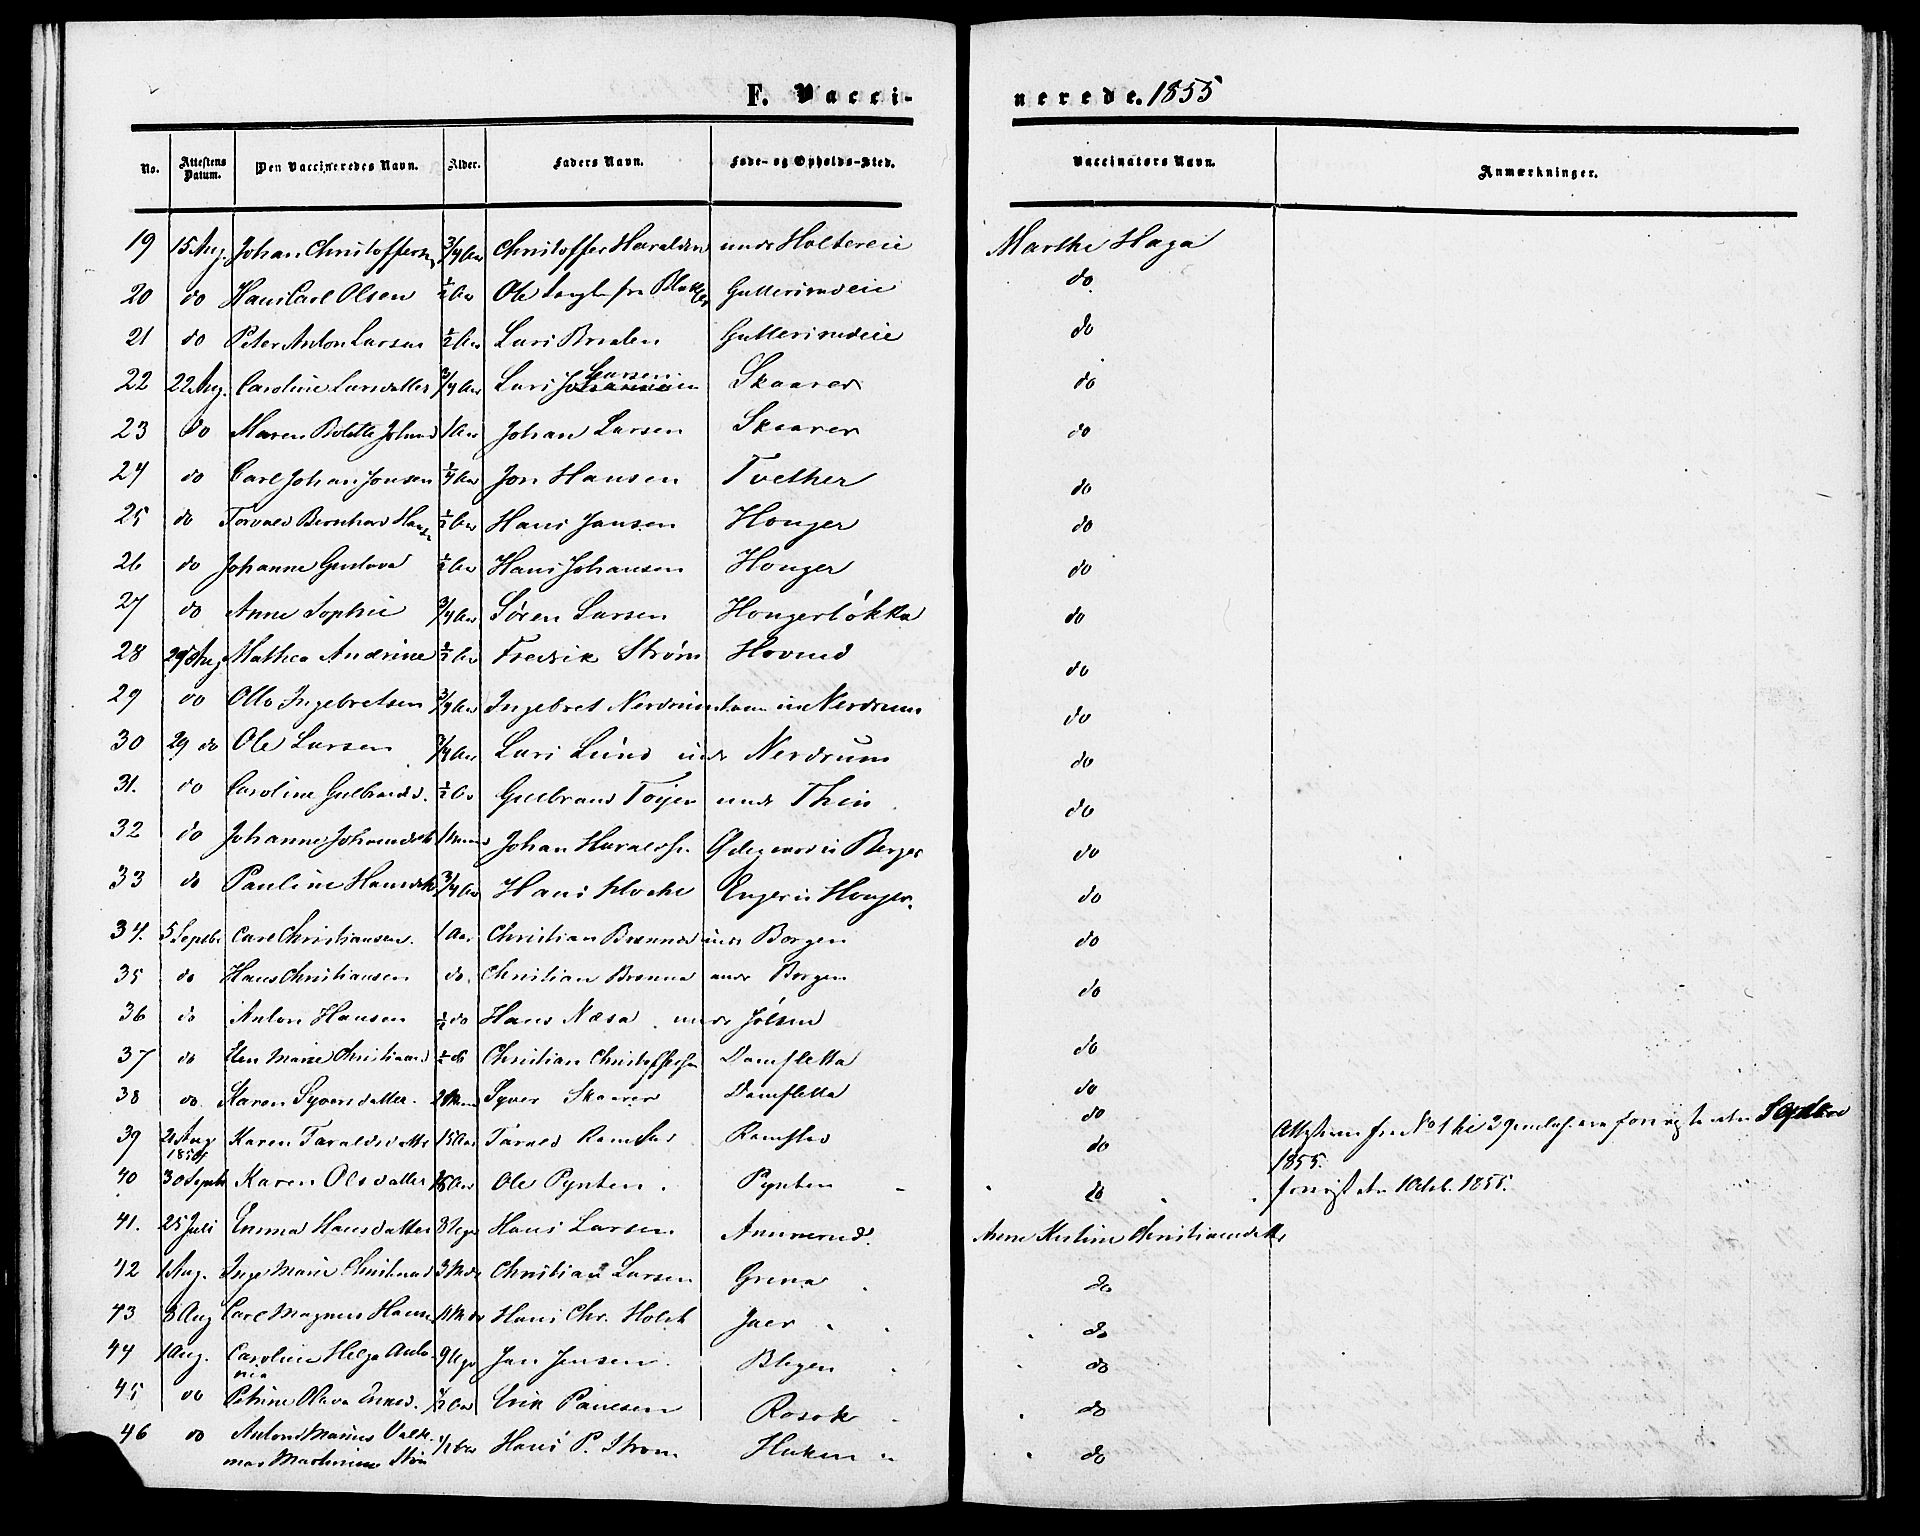 F. Vacci-
nerede. 1855
No. Attestens Datum. Den Vaccineredes Navn. Alder. Faders Navn. Føde- og Opholds-Sted. Vaccinators Navn. Anmærkninger.
19 15 Aug. Johan Christoffersen 3/4 Aar Christoffer Haralden unde Holtereie Marthe Haga
20 do Hans Carl Olsen 1/2 Aar Ole fra Gullerisudeie do
21 do Peter Anton Larsen 1/2 Aar Lars Gullerisudeie do
22 22 Aug. Caroline Larsdatter 3/4 Aar Lars Larsen Skaarer do
23 do Maren Bolette Johansd 1 Aar Johan Larsen Skaarer do
24 do Carl Johan Jonsen 1/4 Aar Jon Hansen Tvether do
25 do Torvald Bernhard Hansen 1/2 Aar Hans Jansen Honger do
26 do Johanne Gustava 1/2 Aar Hans Johansen Honger do
27 do Anne Sophie 3/4 Aar Søren Larsen Hongerløkka do
28 29 Aug Mathea Andrine 1/2 Aar Fredrik Strøm Hovind do
29 do Otto Ingebretsen 3/4 Aar Ingebret Nerdrum Nerdrum do
30 29 do Ole Larsen 3/4 Aar Lars Lund unde Nerdrum do
31. do Caroline Gulbrandsd. 1/2 Aar Gulbrand Toyen unde Thien do
32 do Johanne Johansdatt Johan Haraldsen Berger do
33 do Pauline Hansdt 3/4 Aar Hans Enger u Honger. do
34. 5 Septbr Carl Christiansen. 1 Aar Christian Brønna unde Borgen do
35 do Hans Christiansen do. Christian Brønna unde Borgen do
36 do Anton Hansen 1/2 do Hans Næsa unde Jølsen do
37 do Elen Marie Christiansd 1/2 do Christian Christoffersen Damsletta do
38 do Karen Syversdatter. Syver Skaarer Damsletta do
39 21 Aug 1854 Karen Taraldsdatter 15 Aar Tarald Ramstad Ramstad do 1855.
40 30 Septbr Karen Olsdatter Aar Ole Pynten. Pynten do 1 Octb. 1855.
41. 25 Juli Emma Hansdatter 8 Uger Hans Larsen Ammerud. Anne Kirstine Christiansdatter
42 1 Aug. Inge Marie Christiansd 3 Mdr Christian Larsen Grina do
43 8 Aug Carl Magnus Hansen Mdr Hans Chr. Holst Jaer do
44 1 Aug. Caroline Helga Antonia 9 Uger Jan Jensen. do
45 do Petrine Olava Eriksd. 1/2 Aar Erik Paulsen Rosok do
46 do Anton Marius Valdemar Martinius Strøm 1/2 Aar Hans P. Strøm Haken do